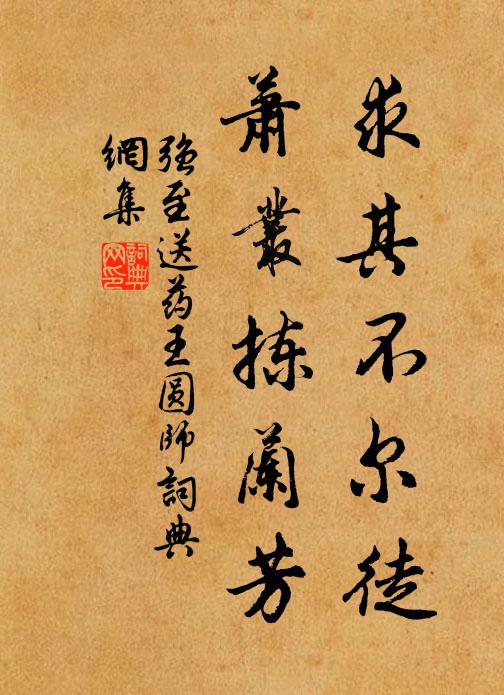 求其不尔徒
萧丛拣兰芳
强至送药王圆师詞典
網集
詞典
网印